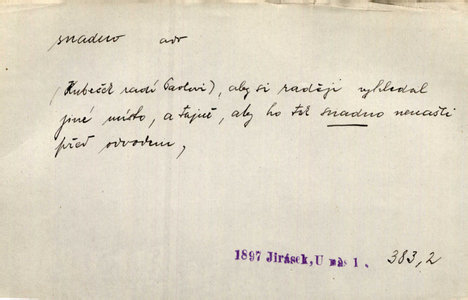 snadno adv
(Kubeček radí Pavlovi), aby si raději vyhledal
jiné místo, a tajně, aby ho tak snadno nenašli
před odvodem,
1897 Jirásek, U nás 1. 383,2